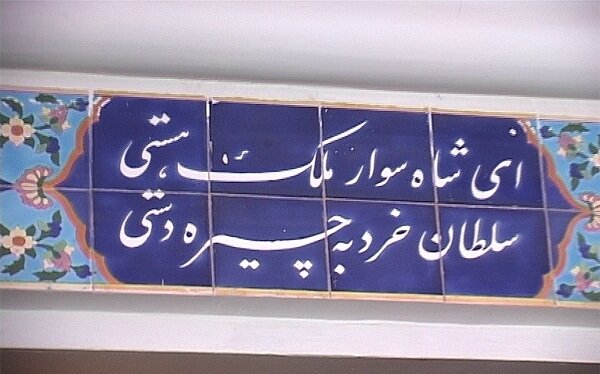 ای شاه سوار ملک هستی
سلطان خرد به چیره دستی